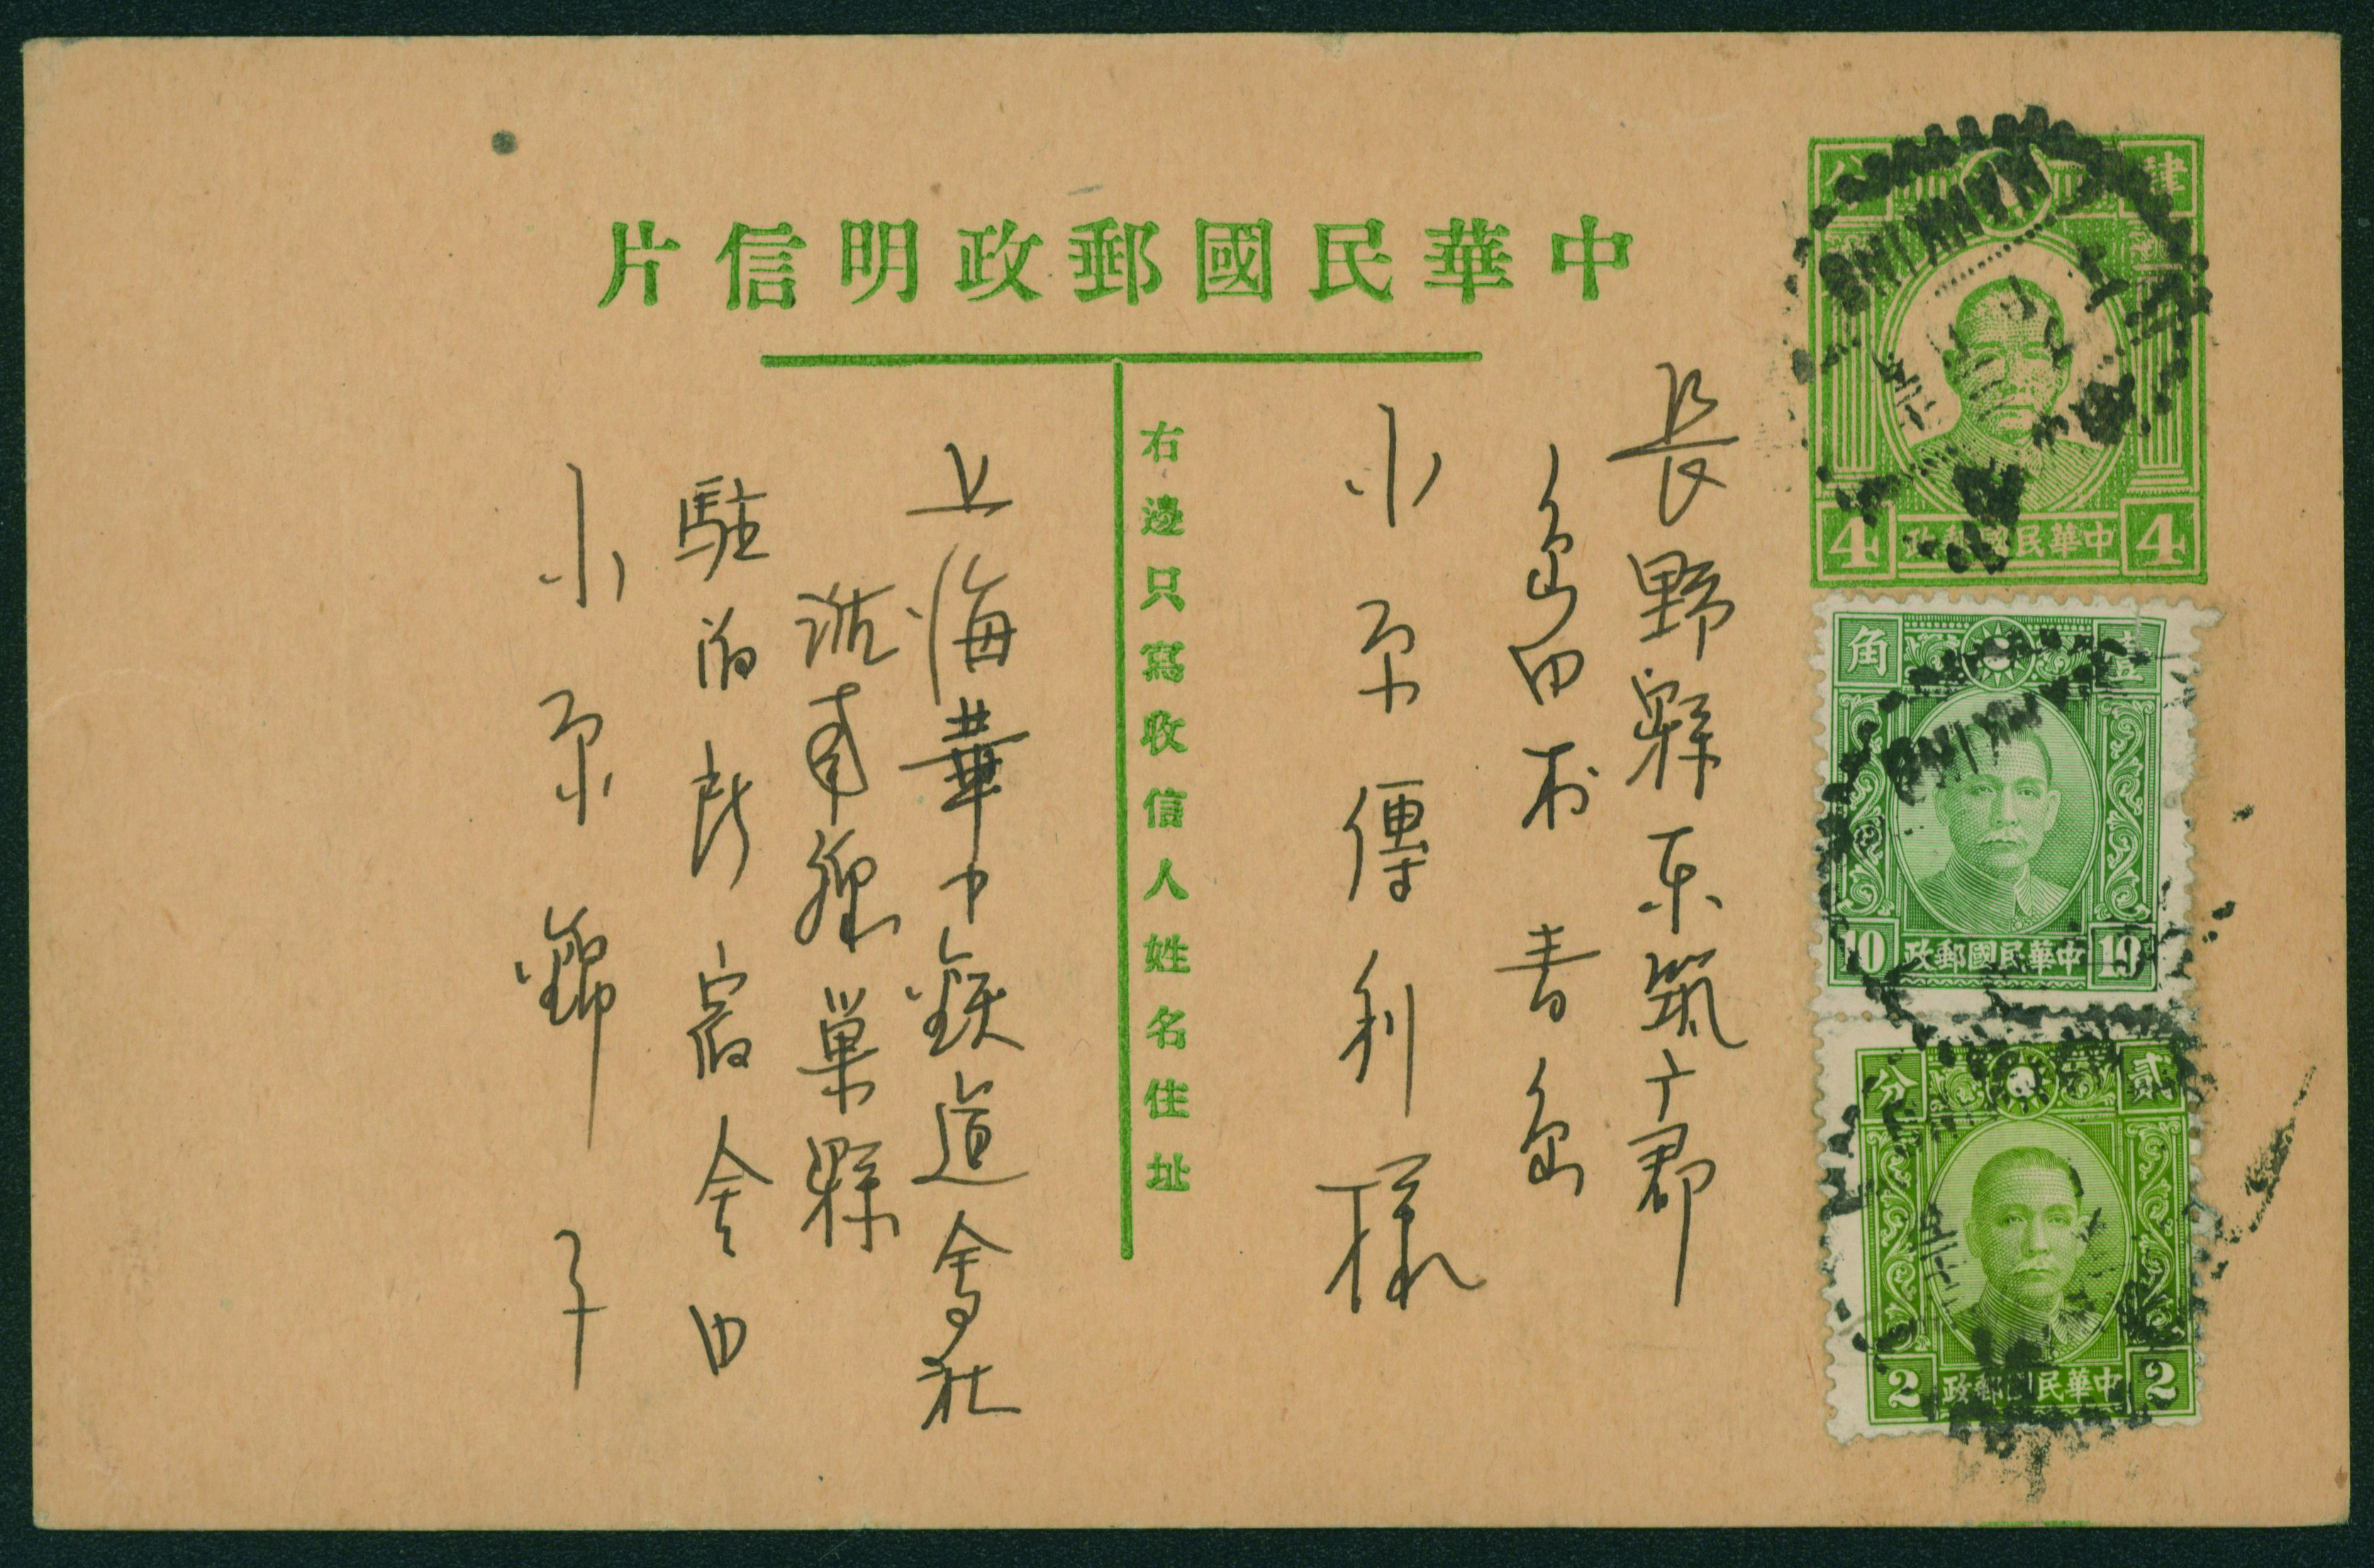 中華民國郵政明信片
肆分
4 中華民國郵政 4
NANKING
壹角
10 中華民國郵政 10
NANKING
貳分
2 中華民國郵政 2
長野縣東筑广郡
島田村 青島
小原傳利様
右邊只寫收信人姓名住址
上海華中鉄道會社
淮南線巣縣
駐泊所宿舎内
小原錦子